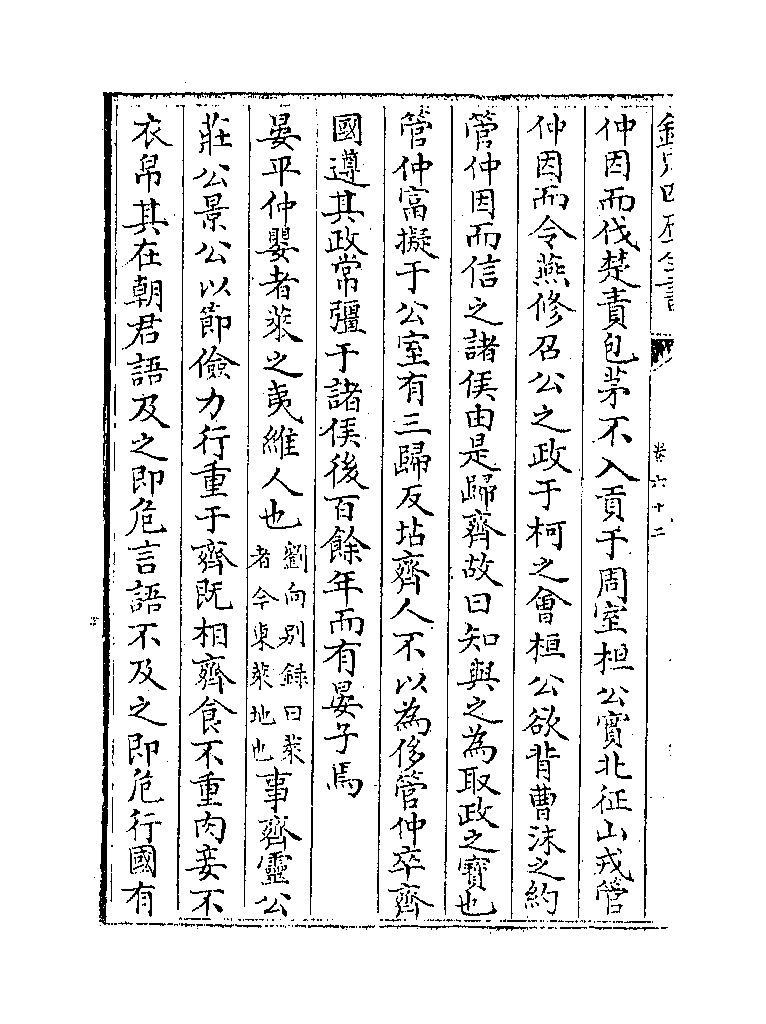 欽定四庫全書
卷六十二
仲因而伐楚責包茅不入貢于周室桓公實北征山戎管
仲因而令燕修召公之政于柯之會桓公欲背曹沫之約
管仲因而信之諸侯由是歸齊故曰知與之為取政之寶也
管仲富擬于公室有三歸反坫齊人不以為侈管仲卒齊
國遵其政常彊于諸侯後百餘年而有晏子焉
晏平仲嬰者萊之夷維人也劉向别録曰萊者今東萊地也事齊靈公
莊公景公以節儉力行重于齊既相齊食不重肉妾不
衣帛其在朝君語及之即危言語不及之即危行國有